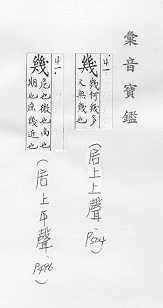 彙音寶鑑
4-1
幾 幾何幾多
又無幾也
(居上上聲)
P504
4-1
幾 尾也微也尚也
期也庶幾近也
(居上平聲)
P496